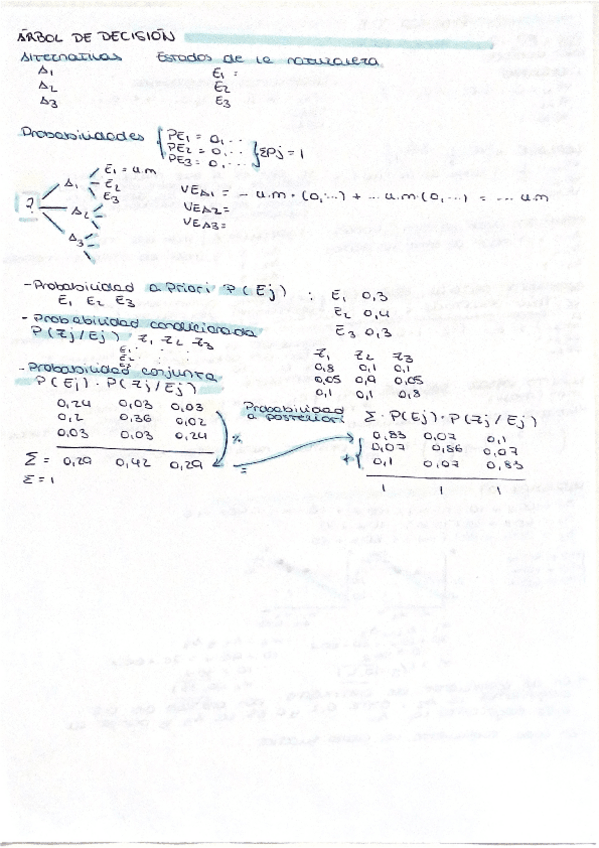 ÁRBOL DE DECISIÓN
Alternativas Estados de la naturaleza
A1 E1 :
A2 E2
A3 E3
Probabilidades { PE1 = 0,...
PE2 = 0,... } ΣPj = 1
PE3 = 0,...
? A1 E1 = u.m
E2
E3
A2
A3
VEA1 = - u.m · (0,...) + ... u.m (0,...) = ... u.m
VEA2 =
VEA3 =
- Probabilidad a priori P(Ej) : E1 0,3
E1 E2 E3 E2 0,4
- Probabilidad condicionada E3 0,3
P(Zj/Ej) Z1 Z2 Z3
E1
E2
Z1 Z2 Z3
0,8 0,1 0,1
0,05 0,9 0,05
0,1 0,1 0,8
- Probabilidad conjunta
P(Ej) · P(Zj/Ej)
0,24 0,03 0,03
0,2 0,36 0,02
0,03 0,03 0,24
Σ = 0,29 0,42 0,29
Σ = 1
% =
Probabilidad a posteriori Σ · P(Ej) · P(Zj/Ej)
0,83 0,07 0,1
0,07 0,86 0,07
+ 0,1 0,07 0,83
1 1 1